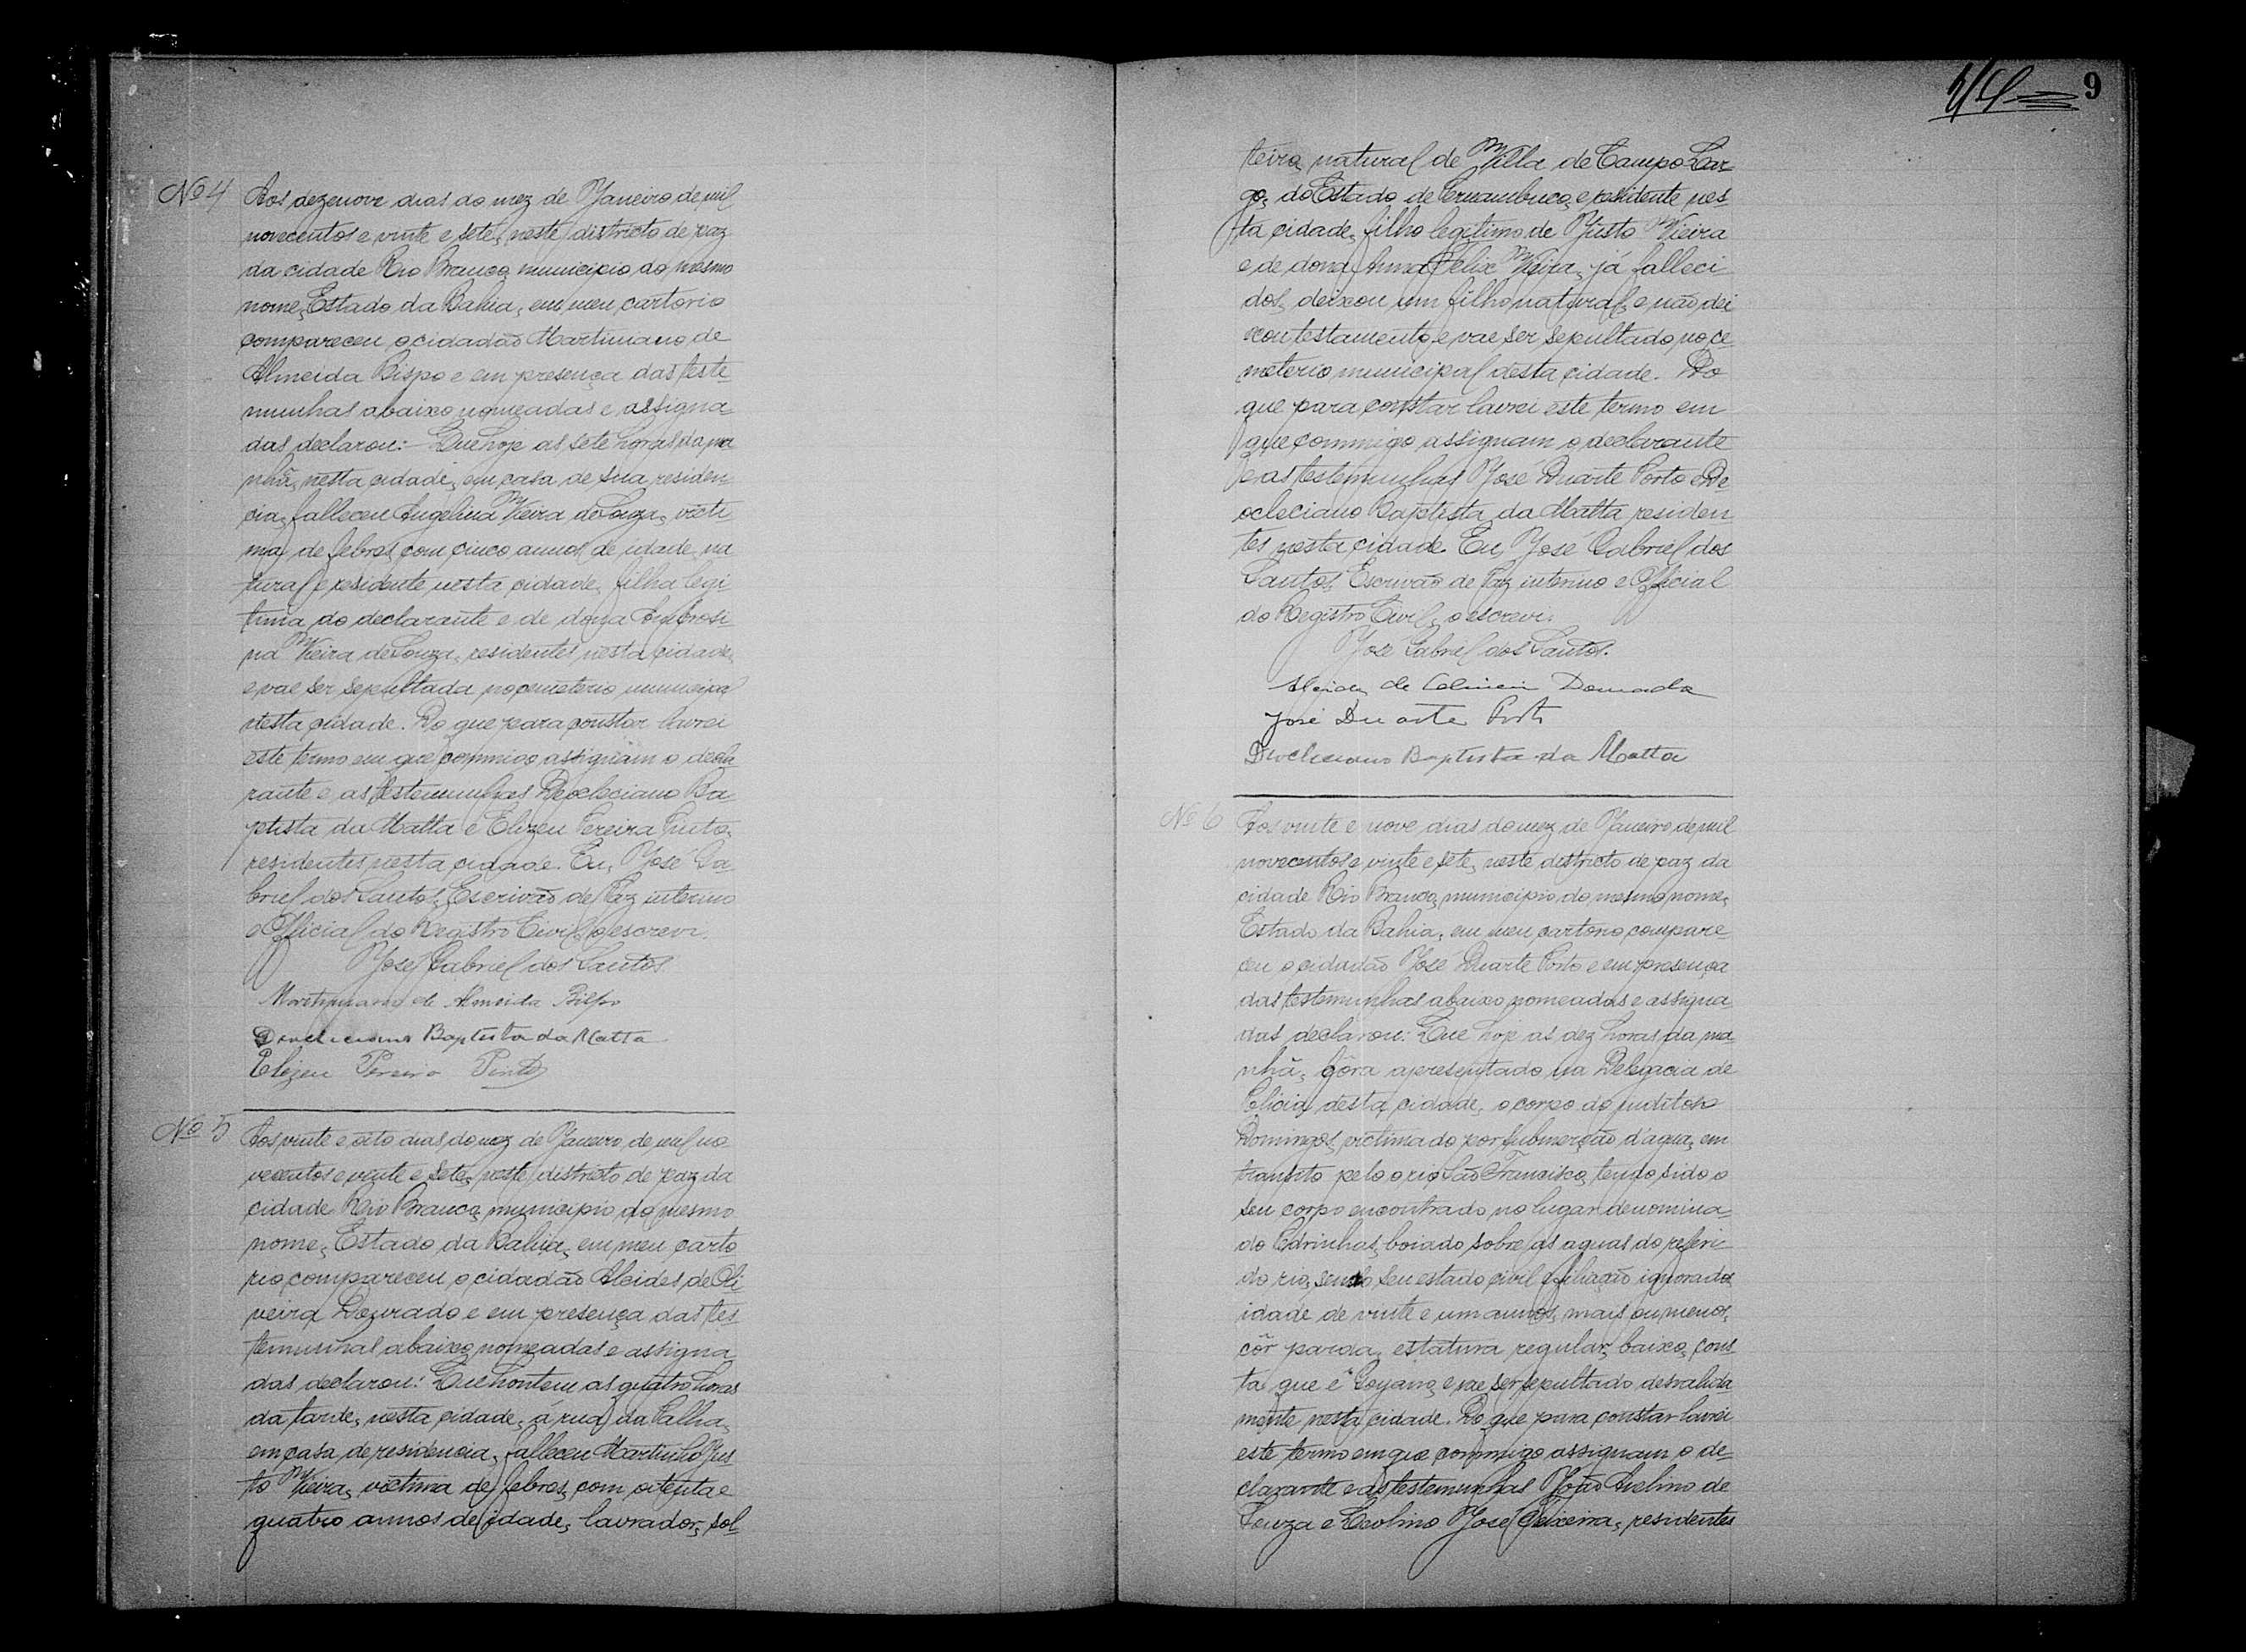 Nº 4
Aos dezenove dias do mez de Janeiro de mil
novecentos e vinte e sete, neste districto de paz
da cidade Rio Branco, municipio do mesmo
nome, Estado da Bahia, em meu cartorio
compareceu o cidadão Martiniano de
Almeida Bispo e em presença das teste-
munhas abaixo nomeadas e assigna-
das declarou: - Que hoje as sete horas da ma
nhã, nesta cidade, em casa de sua residen-
cia, falleceu Angelina Vieira de Souza, victi-
ma de febres, com cinco annos de idade, na
tural e residente nesta cidade, filha legi-
tima do declarante e de dona Ambrosi-
na Vieira de Souza, residentes nesta cidade,
e vae ser sepultada no cemeterio municipal
desta cidade. Do que para constar lavrei
este termo em que commigo assignam o decla
rante e as testemunhas Deocleciano Ba-
ptista da Matta e Elizeu Pereira Pinto,
residentes nesta cidade. Eu, José Ga-
briel dos Santos, Escrivão de Paz interino
e Official do Registro Civil, o escrevi.
José Gabriel dos Santos.
Martiniano de Almeida Bispo
Deocleciano Baptista da Matta
Elizeu Pereira Pinto
Nº 5
Aos vinte e oito dias do mez de Janeiro de mil no
vecentos e vinte e sete, neste districto de paz da
cidade Rio Branco, municipio do mesmo
nome, Estado da Bahia, em meu carto
rio compareceu o cidadão Alcides de Oli
veira Dourado e em presença das tes-
temunhas abaixo nomeadas e assigna
das declarou: Que hontem as quatro horas
da tarde, nesta cidade, á rua da Palha,
em casa de residencia, falleceu Martinho Jus
to Vieira, victima de febres, com oitenta e
quatro annos de idade, lavrador, sol-
9
teiro, natural de Villa de Campo Lar-
go, do Estado de Pernambuco, e residente nes-
ta cidade, filho legitimo de Justo Vieira
e de dona Anna Felix Vieira, já falleci
dos, deixou um filho natural, e não dei
xou testamento, e vae ser sepultado no ce-
meterio municipal desta cidade. Do
que para constar lavrei este termo em
que commigo assignam o declarante
e as testemunhas José Duarte Porto e De-
ocleciano Baptista da Matta residen
tes nesta cidade. Eu, José Gabriel dos
Santos, Escrivão de Paz interino e Official
do Registro Civil, o escrevi.
José Gabriel dos Santos.
Alcides de Oliveira Dourado
José Duarte Porto
Deocleciano Baptista da Matta
Nº 6
Aos vinte e nove dias do mez de Janeiro de mil
novecentos e vinte e sete, neste districto de paz da
cidade Rio Branco, municipio do mesmo nome,
Estado da Bahia, em meu cartorio compare-
ceu o cidadão José Duarte Porto e em presença
das testemunhas abaixo nomeadas e assigna-
das declarou: Que hoje as dez horas da ma-
nhã, fôra apresentado na Delegacia de
Policia desta cidade, o corpo do
Domingos, victimado por submerção d'agua, em
transito pelo o rio São Francisco, tendo sido o
seu corpo encontrado no lugar denomina-
do Pedrinhas, boiado sobre as aguas do referi-
do rio, sendo seu estado civil e filiação ignorados
idade de vinte e um annos, mais ou menos,
côr parda, estatura regular, baixo, cons-
ta que é Goyano, e vae ser sepultado desvalida
mente nesta cidade. Do que para constar lavrei
este termo em que commigo assignam o de-
clarante e as testemunhas João Avelino de
Souza e José Teixeira, residentes